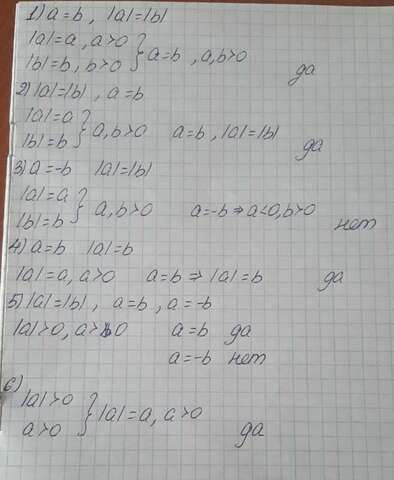 1) a=b, |a|=|b|
|a|=a, a>0
|b|=b, b>0 } a=b, a,b>0
да
2) |a|=|b|, a=b
|a|=a
|b|=b } a,b>0 a=b, |a|=|b|
да
3) a=-b |a|=|b|
|a|=a
|b|=b } a,b>0 a=-b ⇒ a<0, b>0
нет
4) a=b |a|=b
|a|=a, a>0 a=b ⇒ |a|=b да
5) |a|=|b|, a=b, a=-b
|a|>0, a>0 a=b да
a=-b нет
6)
|a|>0
a>0 } |a|=a, a>0
да